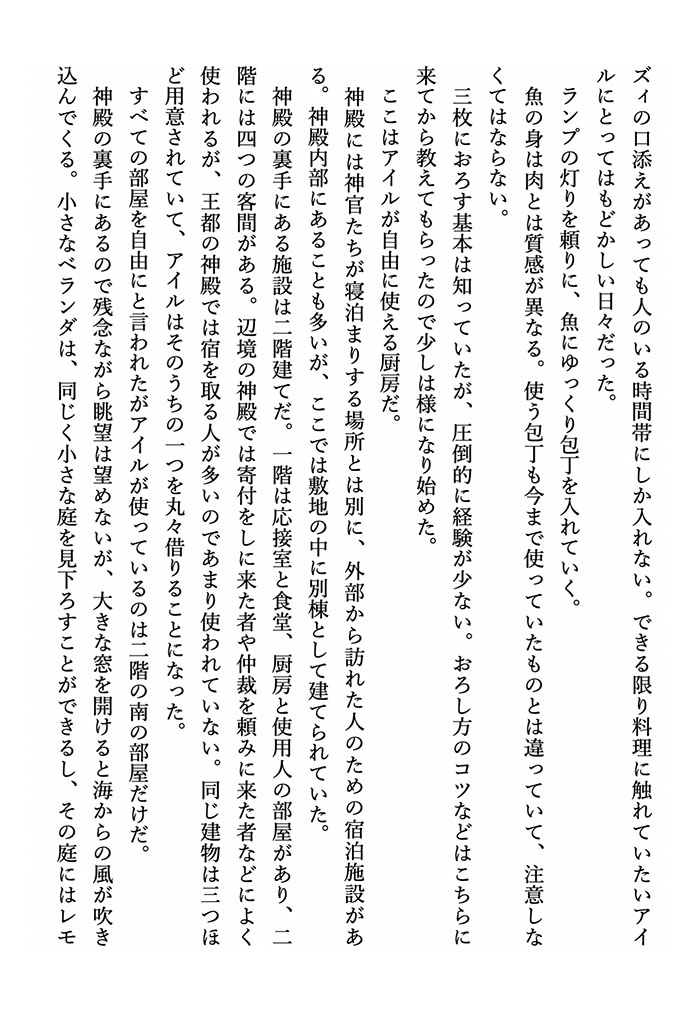 ズィの口添えがあっても人のいる時間帯にしか入れない。できる限り料理に触れていたいアイ
ルにとってはもどかしい日々だった。
　ランプの灯りを頼りに、魚にゆっくり包丁を入れていく。
　魚の身は肉とは質感が異なる。使う包丁も今まで使っていたものとは違っていて、注意しな
くてはならない。
　三枚におろす基本は知っていたが、圧倒的に経験が少ない。おろし方のコツなどはこちらに
来てから教えてもらったので少しは様になり始めた。
　ここはアイルが自由に使える厨房だ。
　神殿には神官たちが寝泊まりする場所とは別に、外部から訪れた人のための宿泊施設があ
る。神殿内部にあることも多いが、ここでは敷地の中に別棟として建てられていた。
　神殿の裏手にある施設は二階建てだ。一階は応接室と食堂、厨房と使用人の部屋があり、二
階には四つの客間がある。辺境の神殿では寄付をしに来た者や仲裁を頼みに来た者などによく
使われるが、王都の神殿では宿を取る人が多いのであまり使われていない。同じ建物は三つほ
ど用意されていて、アイルはそのうちの一つを丸々借りることになった。
　すべての部屋を自由にと言われたがアイルが使っているのは二階の南の部屋だけだ。
　神殿の裏手にあるので残念ながら眺望は望めないが、大きな窓を開けると海からの風が吹き
込んでくる。小さなベランダは、同じく小さな庭を見下ろすことができるし、その庭にはレモ